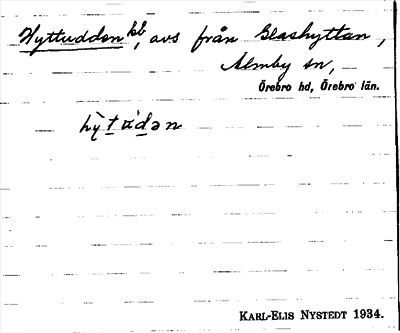 Hyttudden kb, avs från Glashyttan,
Almby sn,
Örebro hd, Örebro län.
hỳt ú̶dən
KARL-ELIS NYSTEDT 1934.